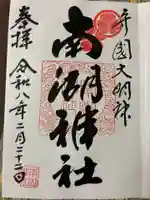 守国大明神
南湖神社
奉拝
令和八年二月二十二日